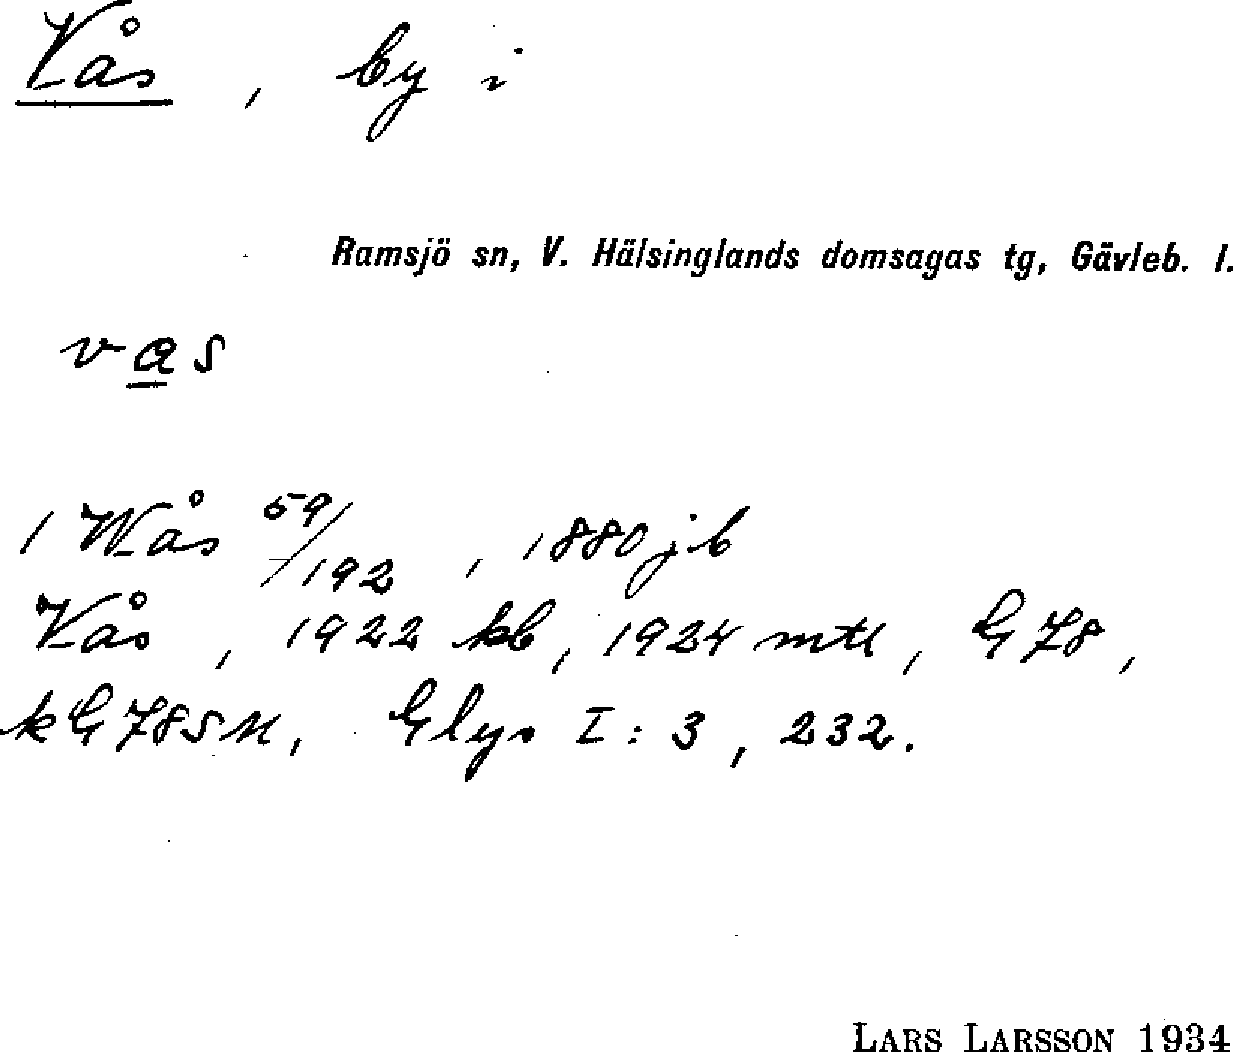 Vås, by i
Ramsjö sn, V. Hälsinglands domsagas tg, Gävleb. l.
vas
1 Wås 59/192, 1880 jb
Vås, 1922 kb, 1924 mtl, G 78,
kG 78 SM, Glys I:3, 232.
LARS LARSSON 1934